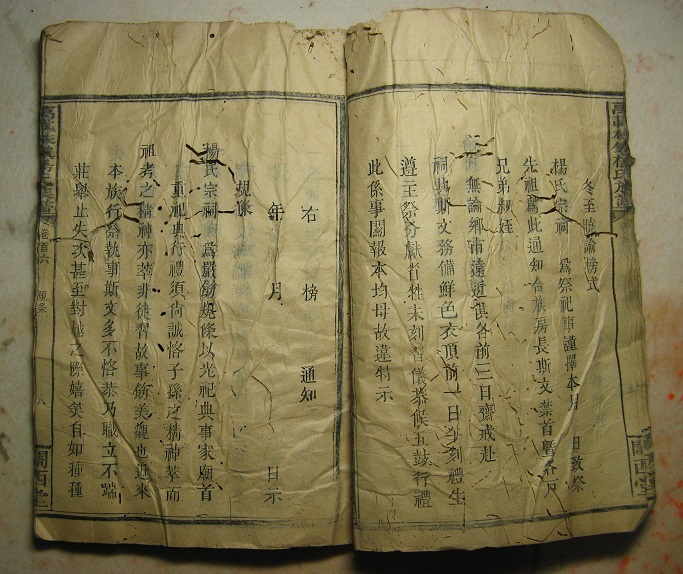 冬至曉諭榜式
楊氏宗祠 爲祭祀事謹擇本月 日致祭
先祖爲此通知合族房長斯文業首暨各戶
兄弟叔姪
無論鄉市遠近俱各前三日齋戒赴
祠與斯文務備鮮色衣頂前一日 刻禮生
遵主祭分獻省牲未刻習儀恭候五鼓行禮
此係事關報本均毋故違特示
關西堂
右榜通知
年 月 日示
規條
楊氏宗祠 爲嚴飭規條以光祀典事家廟首
重祀典行禮須尚誠恪子孫之精神萃而
祖考之精神亦萃非徒習故事飾美觀也近來
本族行祭執事斯文多不恪恭乃職立不端
莊舉止失次甚至對越之際嬉笑自如種種
卷百六 規條
八
關西堂